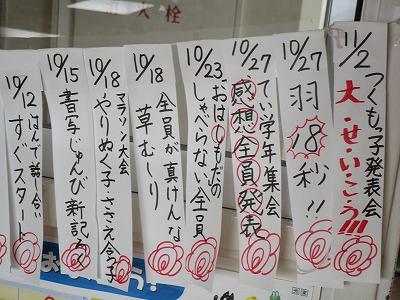 消火栓
11/2
つくもっ子発表会
大・せ・い・こ・う!!!
10/27
羽
18
秒!!
10/27
てい学年集会
感想全員発表
10/23
おはしもだの
しゃべらない全員
10/18
全員が真けんな
草むしり
10/18
マラソン大会
やりぬく子・ささえ合う子
10/15
書写じゅんび新記ろく
10/12
はんで話し合い
すぐスタート